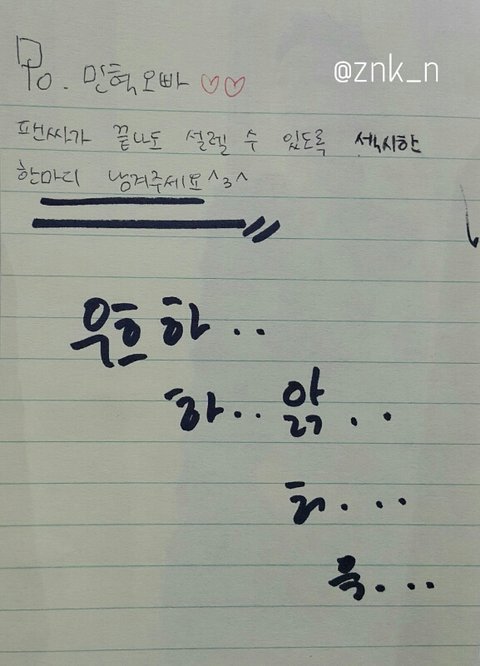 To. 민혁오빠 ♡♡
@znk_n
팬싸가 끝나도 설렐 수 있도록 섹시한
한마디 남겨주세요^3^
우흐하..
하.. 앍..
허...
윽...